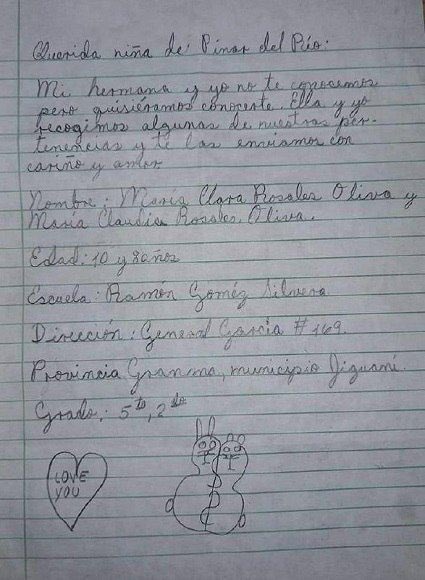 Querida niña de: Pinar del Río:
Mi hermana y yo no te conocemos
pero quisiéramos conocerte. Ella y yo
recogimos algunas de nuestras per-
tenencias y te las enviamos con
cariño y amor.
Nombre: María Clara Rosales Oliva y
María Claudia Rosales Oliva.
Edad: 10 y 8 años
Escuela: Ramón Goméz Silvera
Dirección: General García # 169
Provincia Granma, municipio Jiguaní.
Grado: 5to, 2do
LOVE
YOU